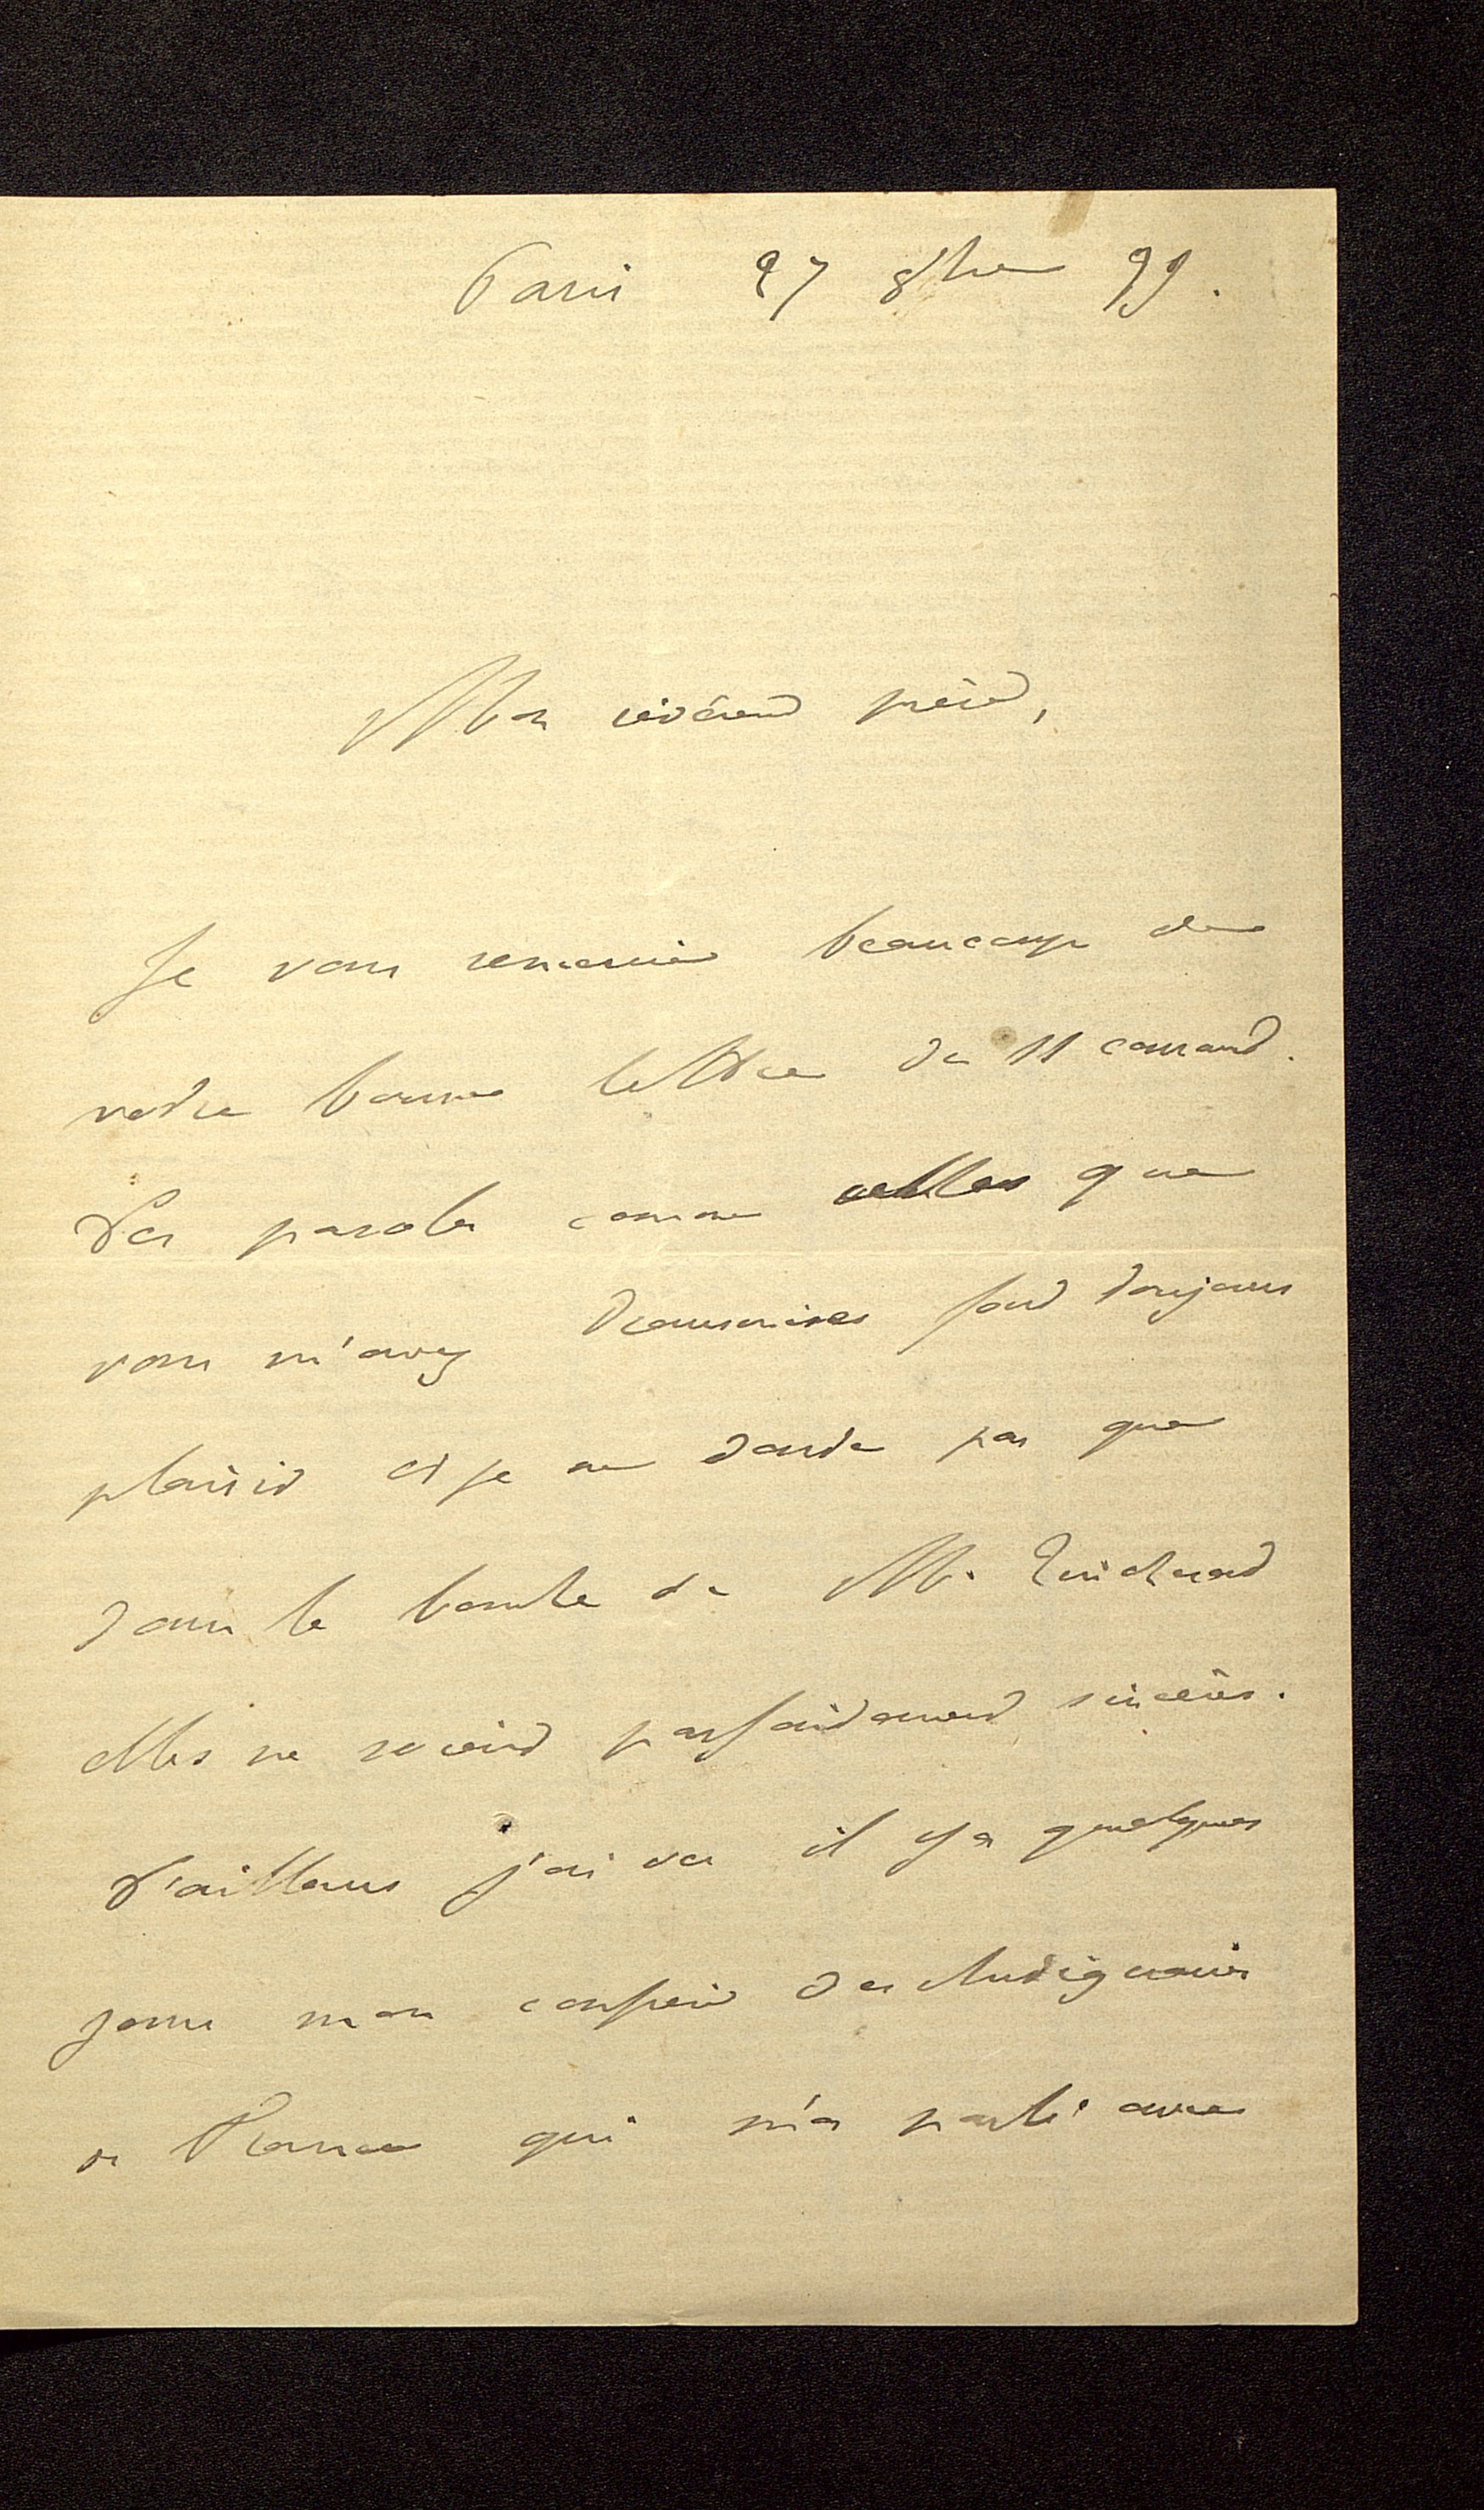 Paris 27 8bre 99.
Mon révérend père,
Je vous remercie beaucoup de
votre bonne lettre du 11 courant.
Des paroles comme celles que
vous m'avez transmises font toujours
plaisir et je ne doute pas que
dans la bouche de M. Guichard
elles ne soient parfaitement sincères.
D'ailleurs j'ai vu il y a quelques
jours mon confrère des Antiquaires
de France qui m'a parlé avec